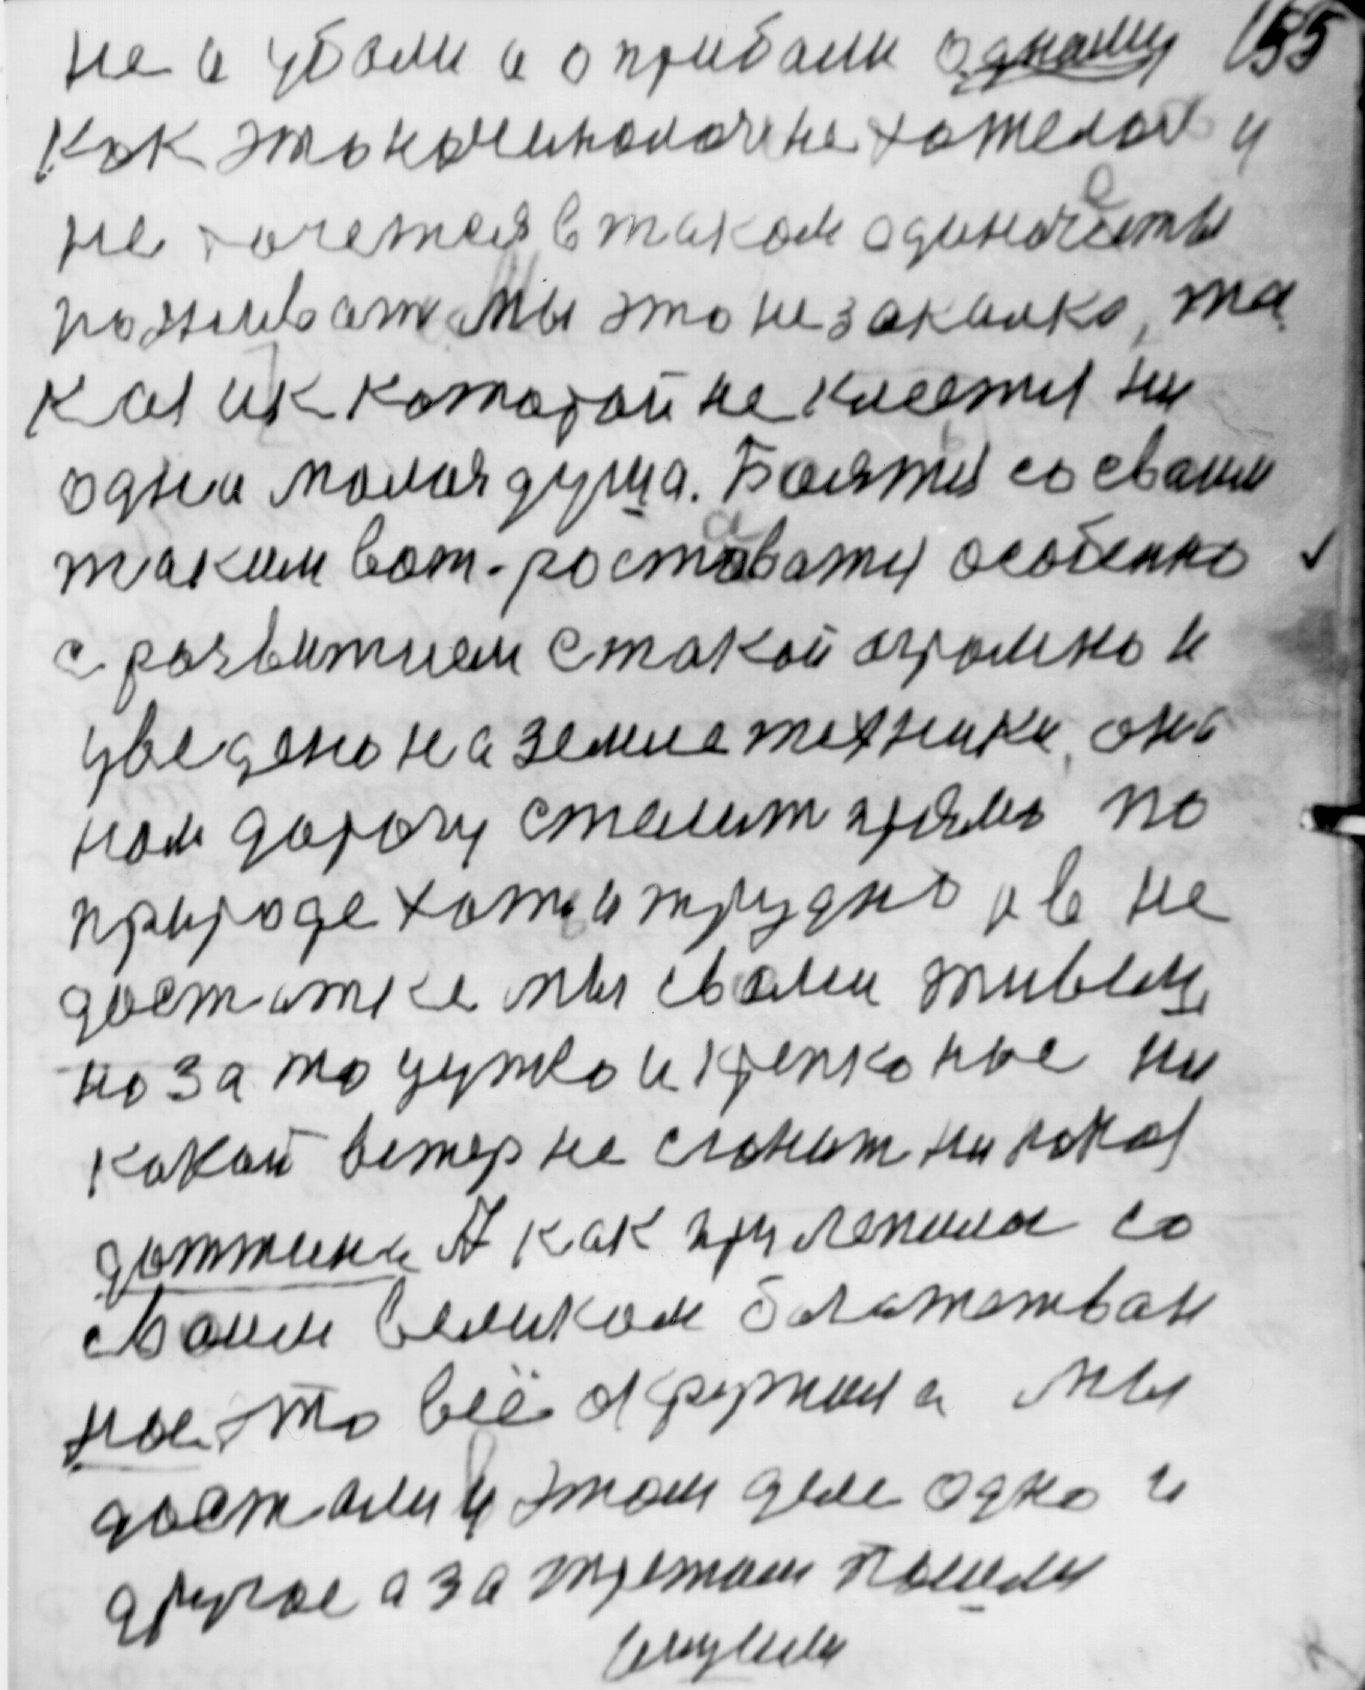 не а убыли а о прибыли одному 155
как это начиналось не хотелось и
не хочется в таком одиночестве
разживать Мы это не закалка, та
кая и к которой не клеется ни
одна малая душа. Боятся со своим
таким вот. расставатся особенно
с развитием с такой огромно и
уведено на земле техники, она
нам дорогу стелит прямо по
природе хотя и трудно, а в не
достатке мы свами живем,
но за то чутко и крепко нас ни
какой ветер не сгонит ни какая
дотжина. А как прилепила со
своим великом блаженством
нас то всё окружила мы
достали в этом деле одно и
другое а за третьим пошли